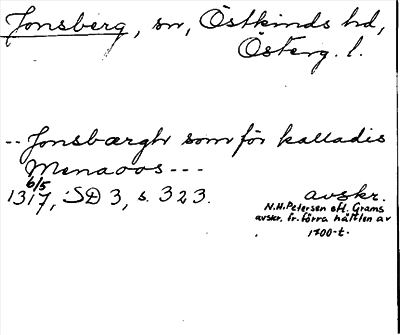 Jonsberg, sn, Östkinds hd,
Österg. l.
-- Jonsbærghr som för kalladis
Menaoos ---
6/5
1317, SD 3, s. 323. avskr.
N.M. Petersen eft. Grams
avskr. fr. förra hälften av
1700-t.